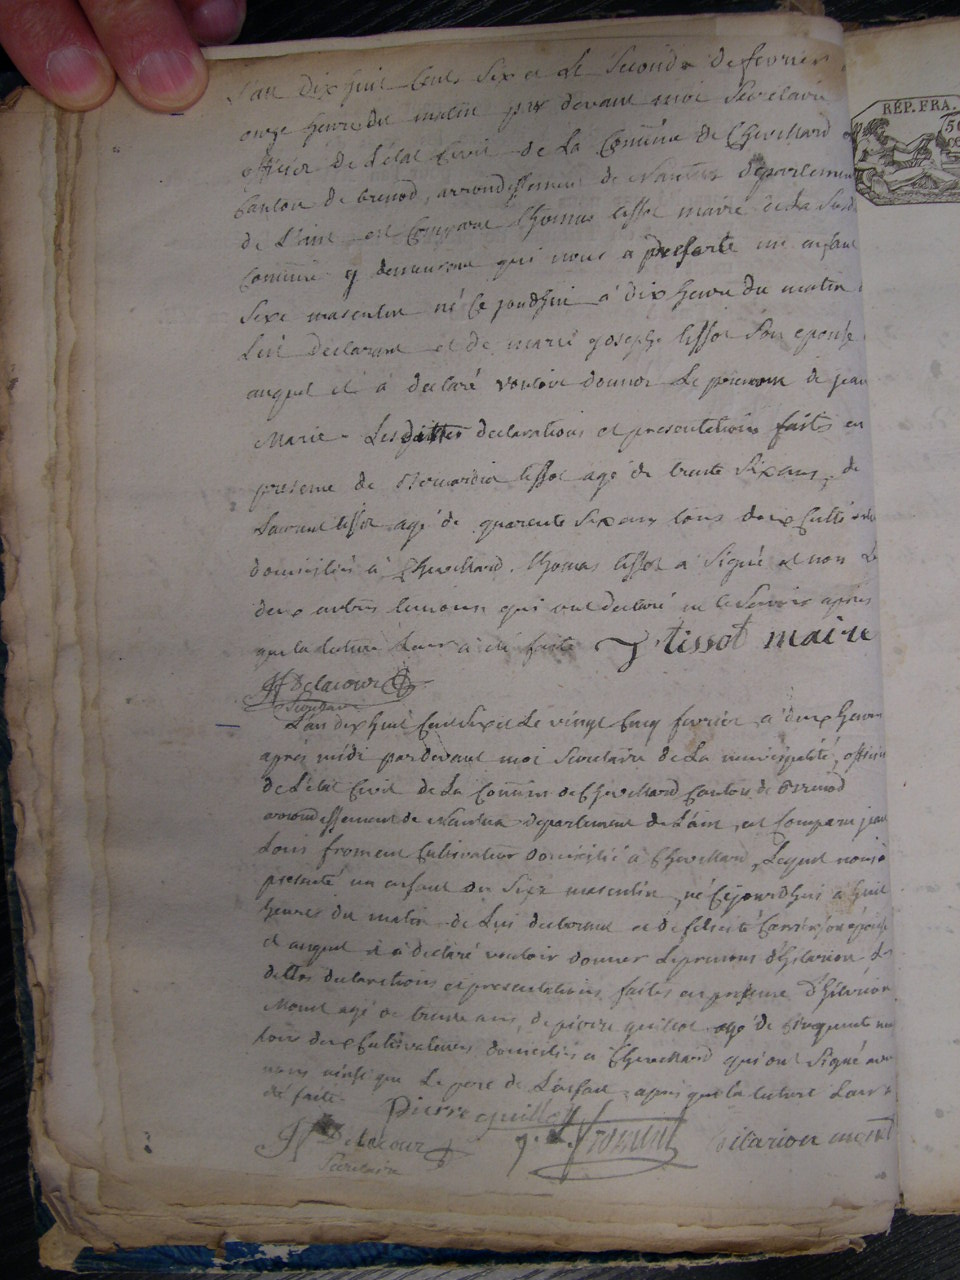 L'an dix huit cent six et le second de fevrier
onze heures du matin par devant moi secretaire
officier de l'état civil de la Commune de Chevillard
Canton de brenod, arrondissement de Nantua departement
de L'ain est comparu thomas tissot maire de la
Commune y demeurant qui nous a presenté un enfant
sexe masculin né ce jourdhui à dix heures du matin
lui declarant et de marie josephe tissot son epouse
auquel il a declaré vouloir donner le prenom de jean
Marie - Lesdittes declarations et presentations faites en
presence de tissot agé de trente six ans, de
Laurent tissot agé de quarente six ans tous deux
domiciliés à Chevillard. thomas tissot a signé et non
deux autres temoins qui ont declaré ne le savoir après
que la lecture leurs a été faite tissot maire
Delacour
Secretaire
L'an dix huit Cent six et le vingt Cinq fevrier à deux heures
après midi pardevant moi secretaire de la municipalité, officier
de L'etat Civil de la Commune de Chevillard Canton de Brenod
arrondissement de Nantua departement de L'ain, est comparu jean
Louis froment Cultivateur domicilié à Chevillard, Lequel nous à
presenté un enfant du sexe masculin, né Cejourdhui a huit
heures du matin de Lui declarant et de felicité son épouse
et auquel il à declaré vouloir donner le prenoms d'hilarion
dittes declarations et presentations faites en presence d'hilarion
Monet agé de trente ans, de pierre guillot agé de cinquante
tous deux Cultivateurs domiciliés à Chevillard qui ont signé avec
nous ainsi que le pere de L'enfant, après que la lecture Leur a
été faite
Pierre guillot froment hilarion monet
Delacour
Secretaire
RÉP. FRA.